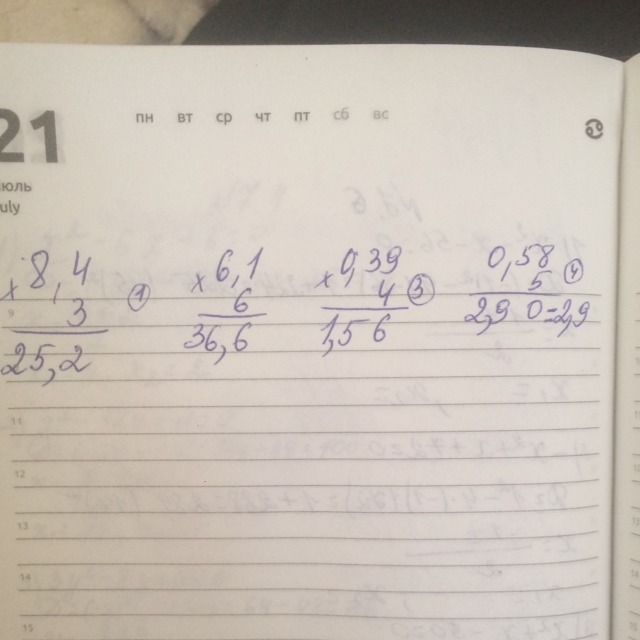 21
пн вт ср чт пт сб вс
июль
July
8,4 × 3 ① 25,2
× 6,1 6 36,6
× 0,39 4 ③ 1,56
0,58 5 ④ 2,90=2,9
9
11
12
13
14
15